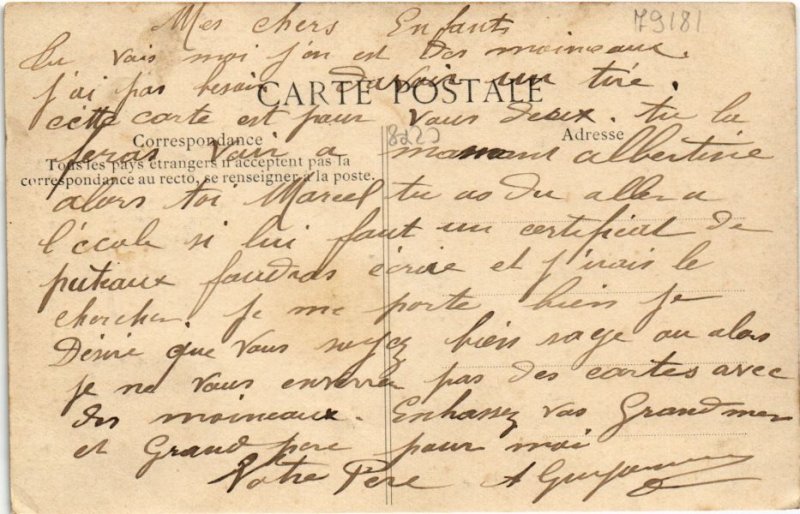 Mes chers Enfants
79181
Tu vais moi j'on est Des moineaux.
j'ai pas besoin davoir un tiré.
CARTE POSTALE
cette carte est pour vous deux. tu la
8220
Correspondance
Adresse
feras voir a maman albertine
Tous les pays étrangers n'acceptent pas la
correspondance au recto, se renseigner à la poste.
alors toi Marcel tu as du aller a
l'école si lui faut un certificat de
puteaux faudras écrire et j'irais le
chercher. je me porte bien je
Désire que vous soyez bien sage ou alors
je ne vous enverrai pas des cartes avec
des moineaux. Enbassez vos Grandmer
et Grand pere pour moi
Votre Père A